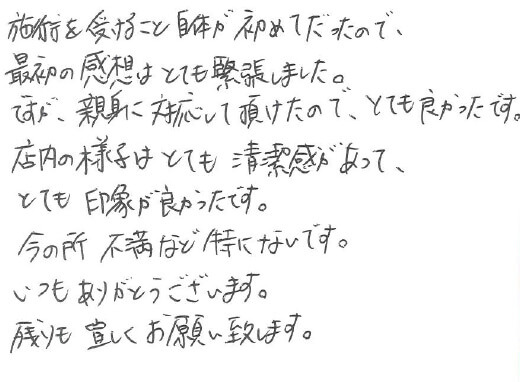 施術を受けること自体が初めてだったので、
最初の感想はとても緊張しました。
ですが、親身に対応して頂けたので、とても良かったです。
店内の様子はとても清潔感があって、
とても印象が良かったです。
今の所不満など特にないです。
いつもありがとうございます。
残りも宜しくお願い致します。